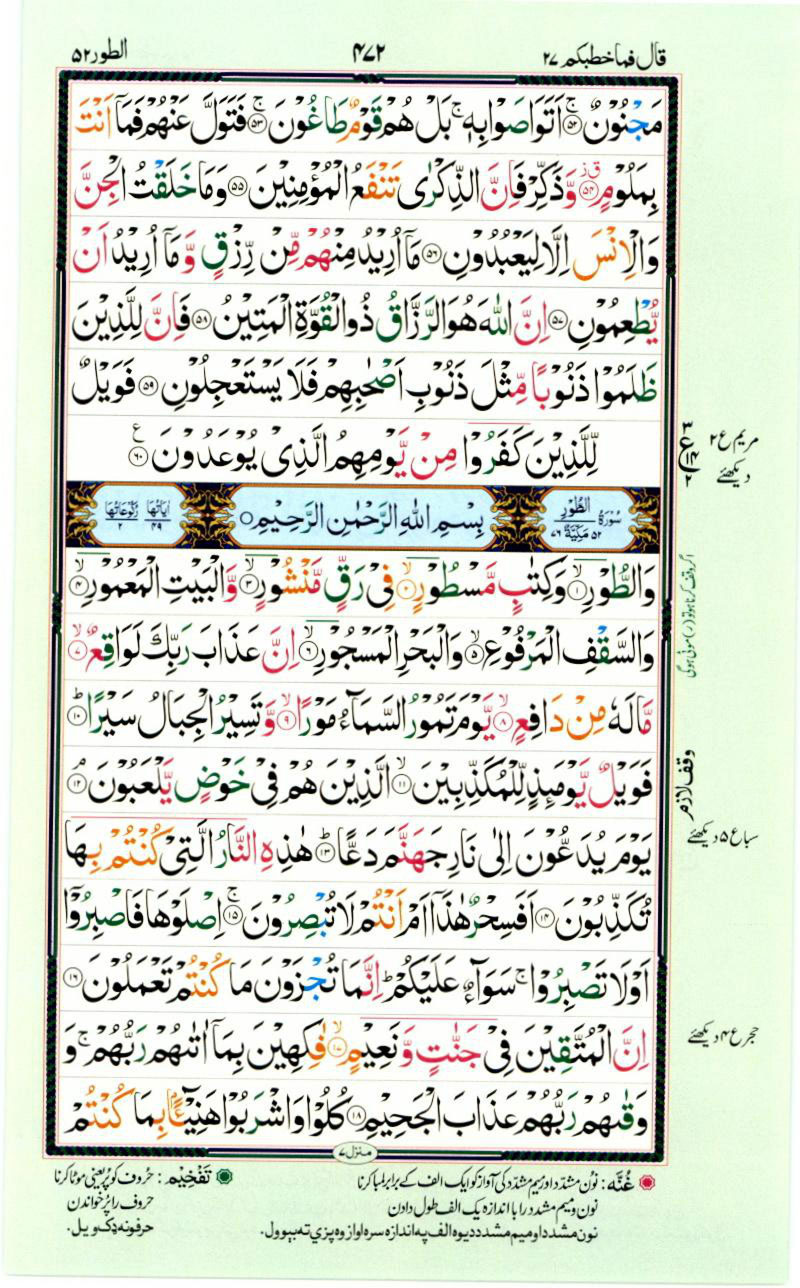 قال فما خطبكم ۲۷ ۴۷۲ الطور ۵۲
مَجْنُوْنٌ ﴿۵۲﴾ۚ اَتَوَاصَوْا بِهٖ ۚ بَلْ هُمْ قَوْمٌ طَاغُوْنَ ﴿۵۳﴾ۚ فَتَوَلَّ عَنْهُمْ فَمَاۤ اَنْتَ
بِمَلُوْمٍ ﴿۵۴﴾ وَّ ذَكِّرْ فَاِنَّ الذِّكْرٰى تَنْفَعُ الْمُؤْمِنِيْنَ ﴿۵۵﴾ وَمَا خَلَقْتُ الْجِنَّ
وَالْاِنْسَ اِلَّا لِيَعْبُدُوْنِ ﴿۵۶﴾ مَاۤ اُرِيْدُ مِنْهُمْ مِّنْ رِّزْقٍ وَّ مَاۤ اُرِيْدُ اَنْ
يُّطْعِمُوْنِ ﴿۵۷﴾ اِنَّ اللّٰهَ هُوَ الرَّزَّاقُ ذُو الْقُوَّةِ الْمَتِيْنُ ﴿۵۸﴾ فَاِنَّ لِلَّذِيْنَ
ظَلَمُوْا ذَنُوْبًا مِّثْلَ ذَنُوْبِ اَصْحٰبِهِمْ فَلَا يَسْتَعْجِلُوْنِ ﴿۵۹﴾ فَوَيْلٌ
لِّلَّذِيْنَ كَفَرُوْا مِنْ يَّوْمِهِمُ الَّذِىْ يُوْعَدُوْنَ ﴿۶۰﴾ ع
مریم ع ۲ دیکھئے
سُوْرَةُ الطُّوْرِ ۵۲ مَكِّيَّةٌ ۷۶ بِسْمِ اللّٰهِ الرَّحْمٰنِ الرَّحِيْمِ اٰيَاتُهَا ۴۹ رُكُوْعَاتُهَا ۲
وَالطُّوْرِ ﴿۱﴾ۙ وَكِتٰبٍ مَّسْطُوْرٍ ﴿۲﴾ۙ فِىْ رَقٍّ مَّنْشُوْرٍ ﴿۳﴾ۙ وَّالْبَيْتِ الْمَعْمُوْرِ ﴿۴﴾ۙ
وَالسَّقْفِ الْمَرْفُوْعِ ﴿۵﴾ۙ وَالْبَحْرِ الْمَسْجُوْرِ ﴿۶﴾ۙ اِنَّ عَذَابَ رَبِّكَ لَوَاقِعٌ ﴿۷﴾ۙ
مَّا لَهٗ مِنْ دَافِعٍ ﴿۸﴾ۙ يَّوْمَ تَمُوْرُ السَّمَآءُ مَوْرًا ﴿۹﴾ۙ وَّ تَسِيْرُ الْجِبَالُ سَيْرًا ﴿۱۰﴾ؕ
فَوَيْلٌ يَّوْمَئِذٍ لِّلْمُكَذِّبِيْنَ ﴿۱۱﴾ۙ الَّذِيْنَ هُمْ فِىْ خَوْضٍ يَّلْعَبُوْنَ ﴿۱۲﴾ۘ
وقف لازم
يَوْمَ يُدَعُّوْنَ اِلٰى نَارِ جَهَنَّمَ دَعًّا ﴿۱۳﴾ؕ هٰذِهِ النَّارُ الَّتِىْ كُنْتُمْ بِهَا
سبا ع ۵ دیکھئے
تُكَذِّبُوْنَ ﴿۱۴﴾ اَفَسِحْرٌ هٰذَاۤ اَمْ اَنْتُمْ لَا تُبْصِرُوْنَ ﴿۱۵﴾ۚ اِصْلَوْهَا فَاصْبِرُوْۤا
اَوْ لَا تَصْبِرُوْا ۚ سَوَآءٌ عَلَيْكُمْ ؕ اِنَّمَا تُجْزَوْنَ مَا كُنْتُمْ تَعْمَلُوْنَ ﴿۱۶﴾
اِنَّ الْمُتَّقِيْنَ فِىْ جَنّٰتٍ وَّ نَعِيْمٍ ﴿۱۷﴾ۙ فٰكِهِيْنَ بِمَاۤ اٰتٰىهُمْ رَبُّهُمْ ۚ وَ
حجر ع ۴ دیکھئے
وَقٰىهُمْ رَبُّهُمْ عَذَابَ الْجَحِيْمِ ﴿۱۸﴾ كُلُوْا وَاشْرَبُوْا هَنِيْٓئًۢا بِمَا كُنْتُمْ
منزل ۷
غُنَّه: نون مشدّد اور میم مشدّد کی آواز کو ایک الف کے برابر لمبا کرنا تَفْخِیْم: حروف کو پُر یعنی موٹا کرنا
نون و میم مشدد را با اندازہ یک الف طول دادن حروف را پُر خواندن
نون مشدد او میم مشدد د یوہ الف په اندازه سره اواز وه پزې ته بېوول. حرفونه ډک ویل.